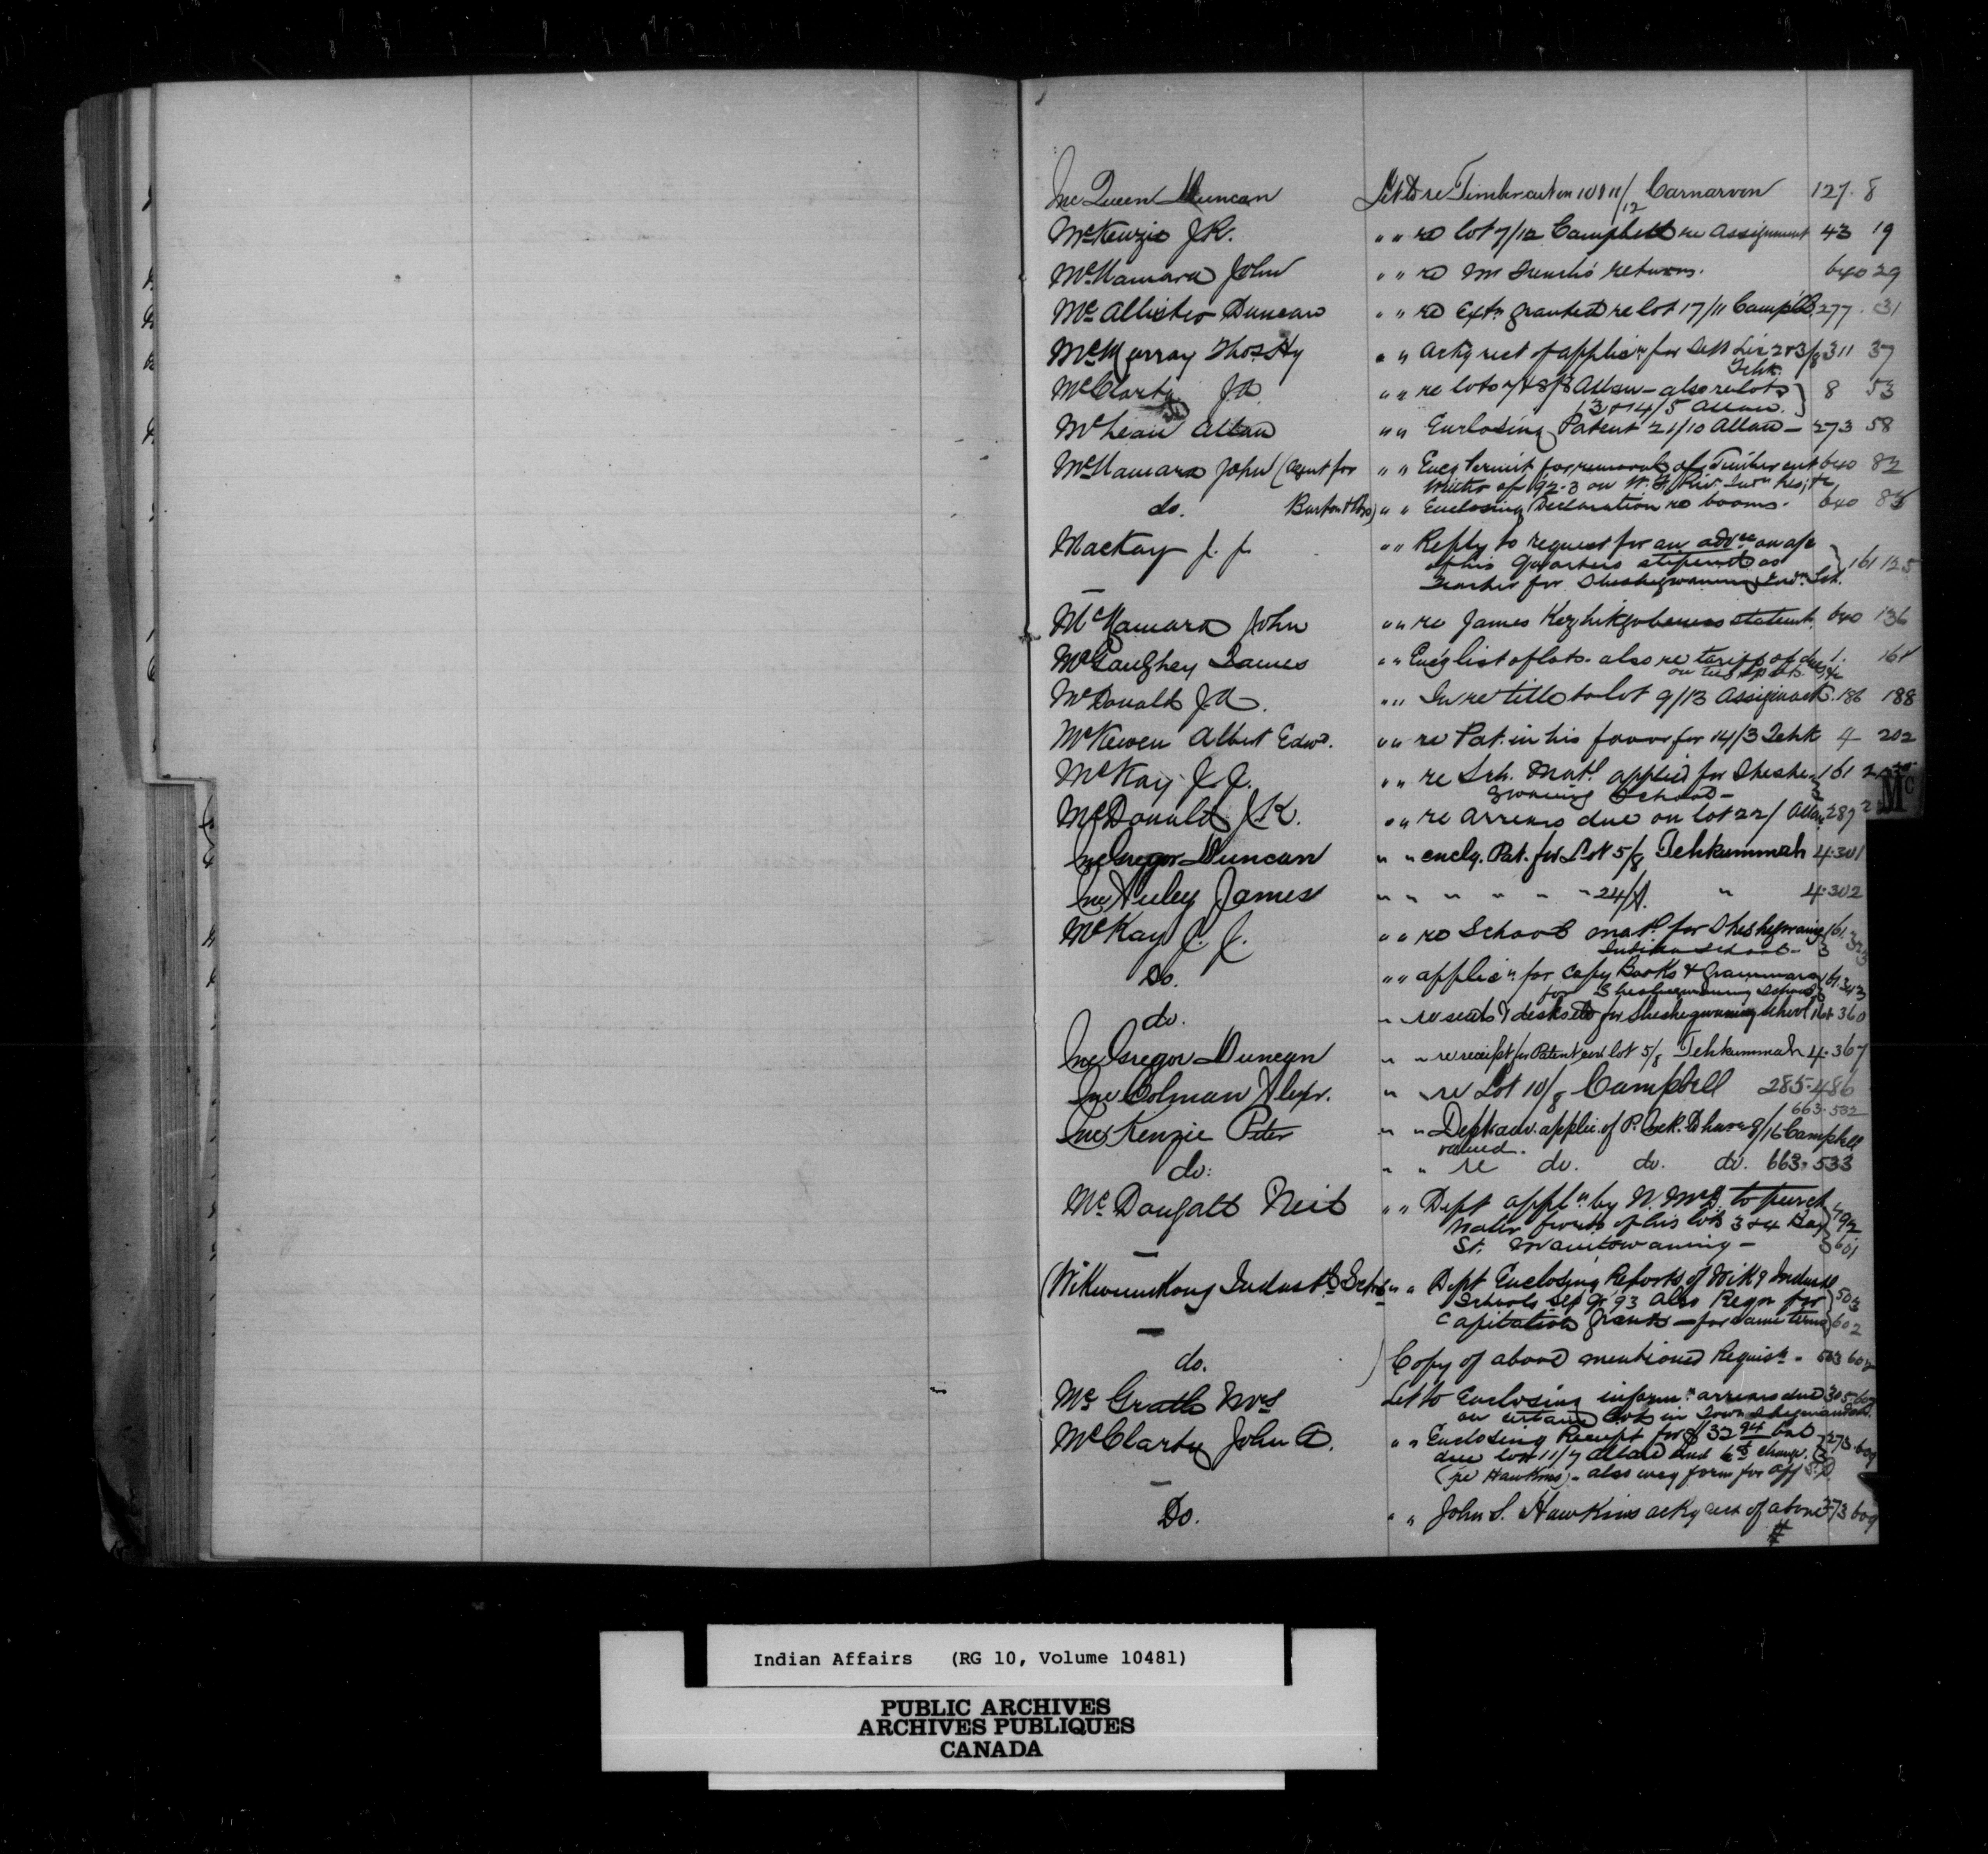 McQueen Duncan Let to re Timber cut on 10 & 11/12 Carnarvon 127. 8
McKenzie J.K. " " re lot 7/12 Campbell re Assignment 43 19
McNamara John " " re Mr French's returns. 640 29
McAllister Duncan " " re Extn granted re lot 17/11 Campbell 277. 31
McMurray Thos Hy " " Ackg rect of applicn for 2 & 3/8 311 37
Tehk.
McClarty J.A. " " re lots 7 & 8/8 Allan - also re lots 8 53
13 & 14/5 Allan.
McLean Allan " " Enclosing Patent 21/10 Allan - 273 58
McNamara John (Agent for " " Encg Permit for removal of Timber cut 640 82
winter of 92-3 on
do. Burton & Bro) " " Enclosing Declaration re booms. 640 83
Mackay J. J. " " Reply to request for an advce on a/c
of his Quarters stipend as 161 125
Teacher for Sheshegwaning Indn Sch.
McNamara John " " re James statemt. 640 136
McGaughey James " " Encg list of lots. also re tariff of dues 1. 161
on
McDonald J.A. " " In re title to lot 9/13 Assiginack. 186 188
McKewen Albert Edwd. " " re Pat. in his favor for 14/3 Tehk 4 202
McKay J. J. " " re Sch. Matl. applied for Sheshe- 161
gwaning School -
Mc
McDonald J.K. " " re arrears due on lot 22/ Allan 289
McGregor Duncan " " enclg. Pat. for Lot 5/8 Tehkummah 4.301
McAuley James " " " " " " 24/A. " 4.302
McKay J. J. " " re School matl. for Sheshegwaning 161.
Indian School - 323
Do. " " applicn for Copy Books & Grammars 161.343
for Sheshegwaning School
do. " " re seats & desks etc for Sheshegwaning School 161 360
McGregor Duncan " " re receipt for Patent lot 5/8 Tehkummah 4.367
McColman Alexr. " " re Lot 10/8 Campbell 285.486
663.532
McKenzie Peter " " Dept adv. applic. of P. McK. to have 9/16 Campbell
valued.
do. " " re do. do. do. 663.533
McDougall Neil " " Dept appln by N. McD. to purch
water fronts of his lots 3 & 4 Bay 92
St. Manitowaning - 601
(Wikwemikong Industl. Schs " " Dept Enclosing Reports of Wikg Industl
Schools Sep Qr '93 Also Reqn for 503
Capitation Grants - for same term 602
do. Copy of above mentioned Requisn. 503 602
McGrath Mrs Let to Enclosing informn arrears due 305.607
on certain lots in Town Shegwiandah.
McClarty John A. " " Enclosing Receipt for $32 94 bal 273.609
due lot 11/7 Allan and 6c change.
(pr Hawkins) - also encg form for aff S.D.
Do. " " John S. Hawkins ackg rect of above 273 609
Indian Affairs (RG 10, Volume 10481)
PUBLIC ARCHIVES
ARCHIVES PUBLIQUES
CANADA